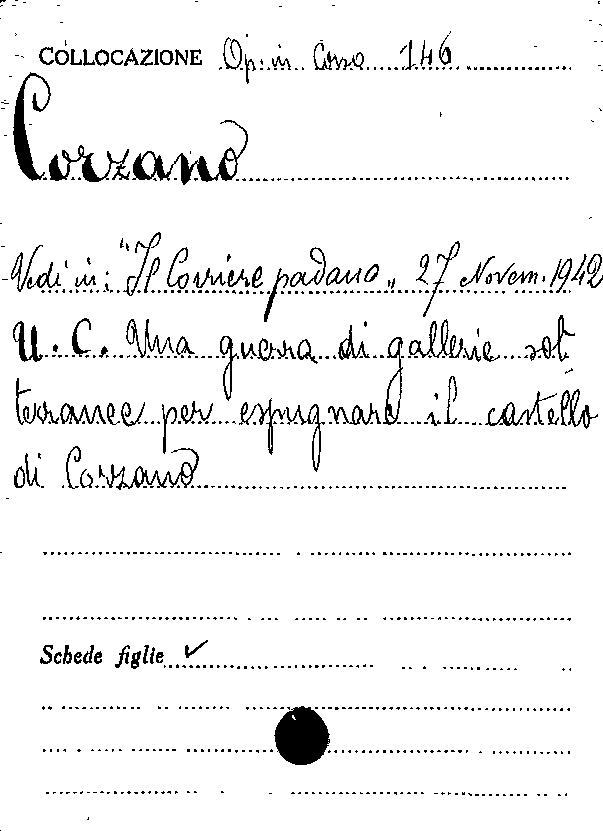 COLLOCAZIONE Op. in Cassa 146
Corzano
Vedi in: "Il Corriere padano„ 27 Novem. 1942
U. C. Una guerra di gallerie sot-
terranee per espugnare il castello
di Corzano
Schede figlie ✓